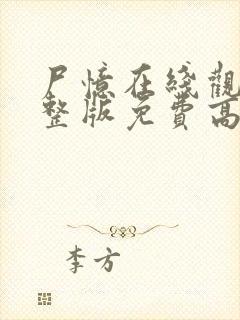 尸憶在綫觀
整版免費高
李方